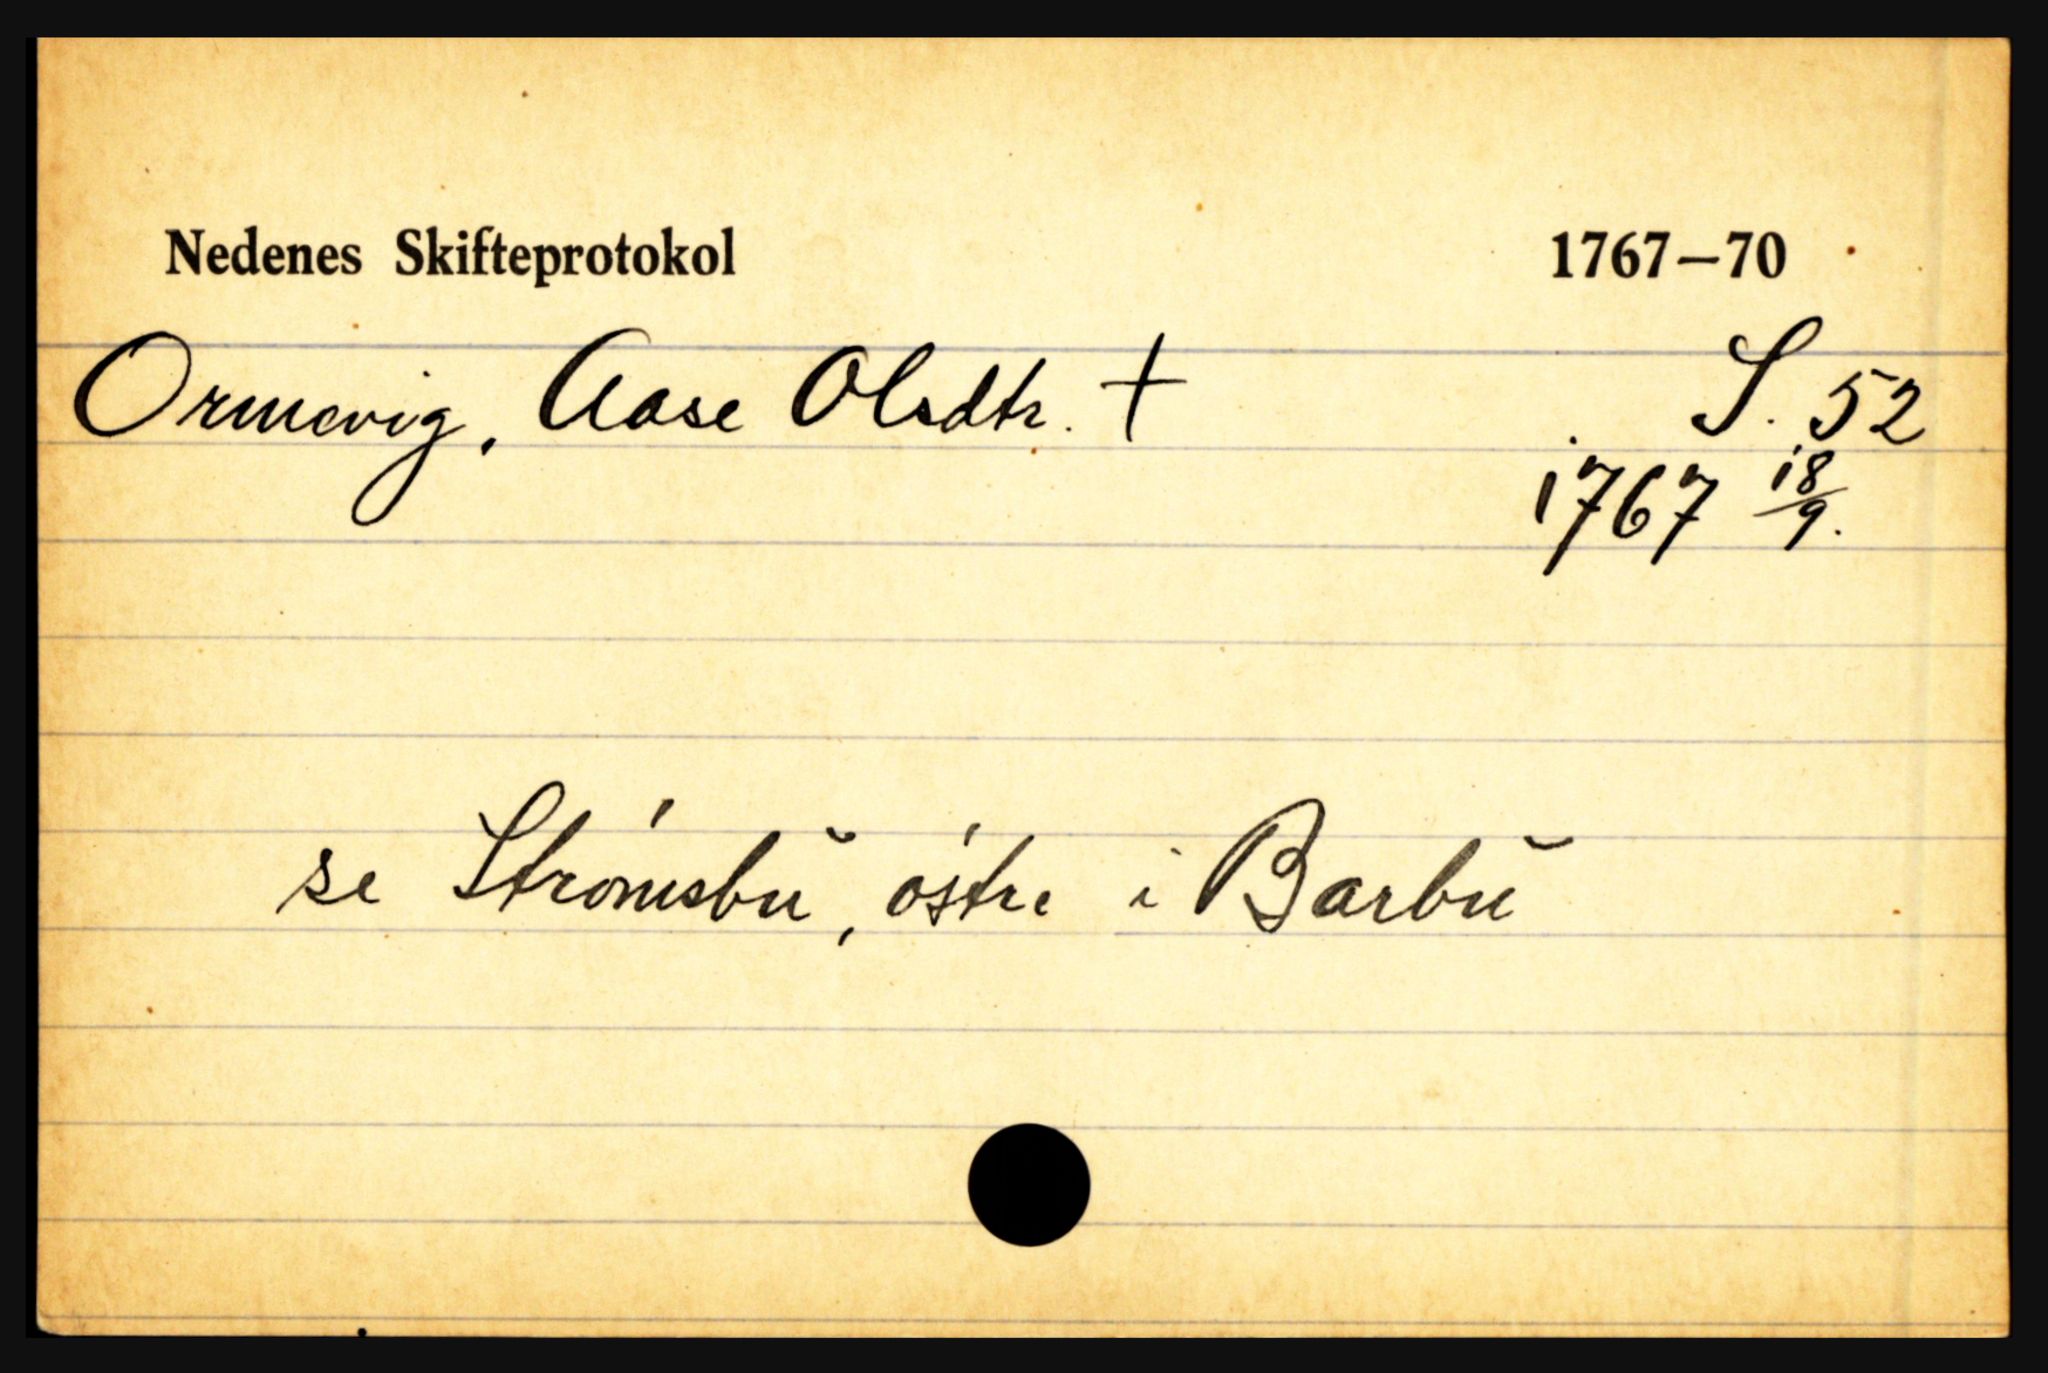 Nedenes Skifteprotokol 1767—70
Ormevig, Aase Olsdtr. † S. 52
1767 18/9.
se Strómsbŭ, óstre i Barbŭ